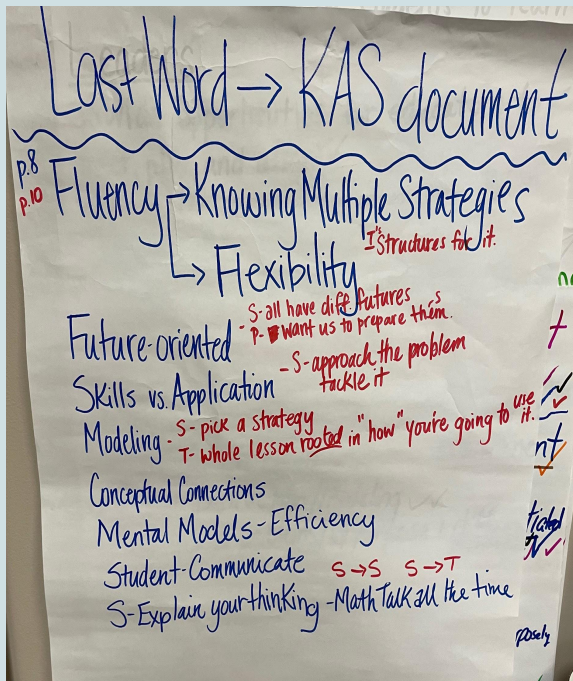 Last Word → KAS document
p.8
p.10
Fluency → Knowing Multiple Strategies
I's Structures for it.
→ Flexibility
Future-oriented - S-all have diff futures
P- want us to prepare them.
Skills vs. Application - S-approach the problem
tackle it
Modeling - S- pick a strategy
T- whole lesson rooted in "how" you're going to use it.
Conceptual Connections
Mental Models-Efficiency
Student-Communicate S→S S→T
S-Explain your thinking -Math Talk all the time